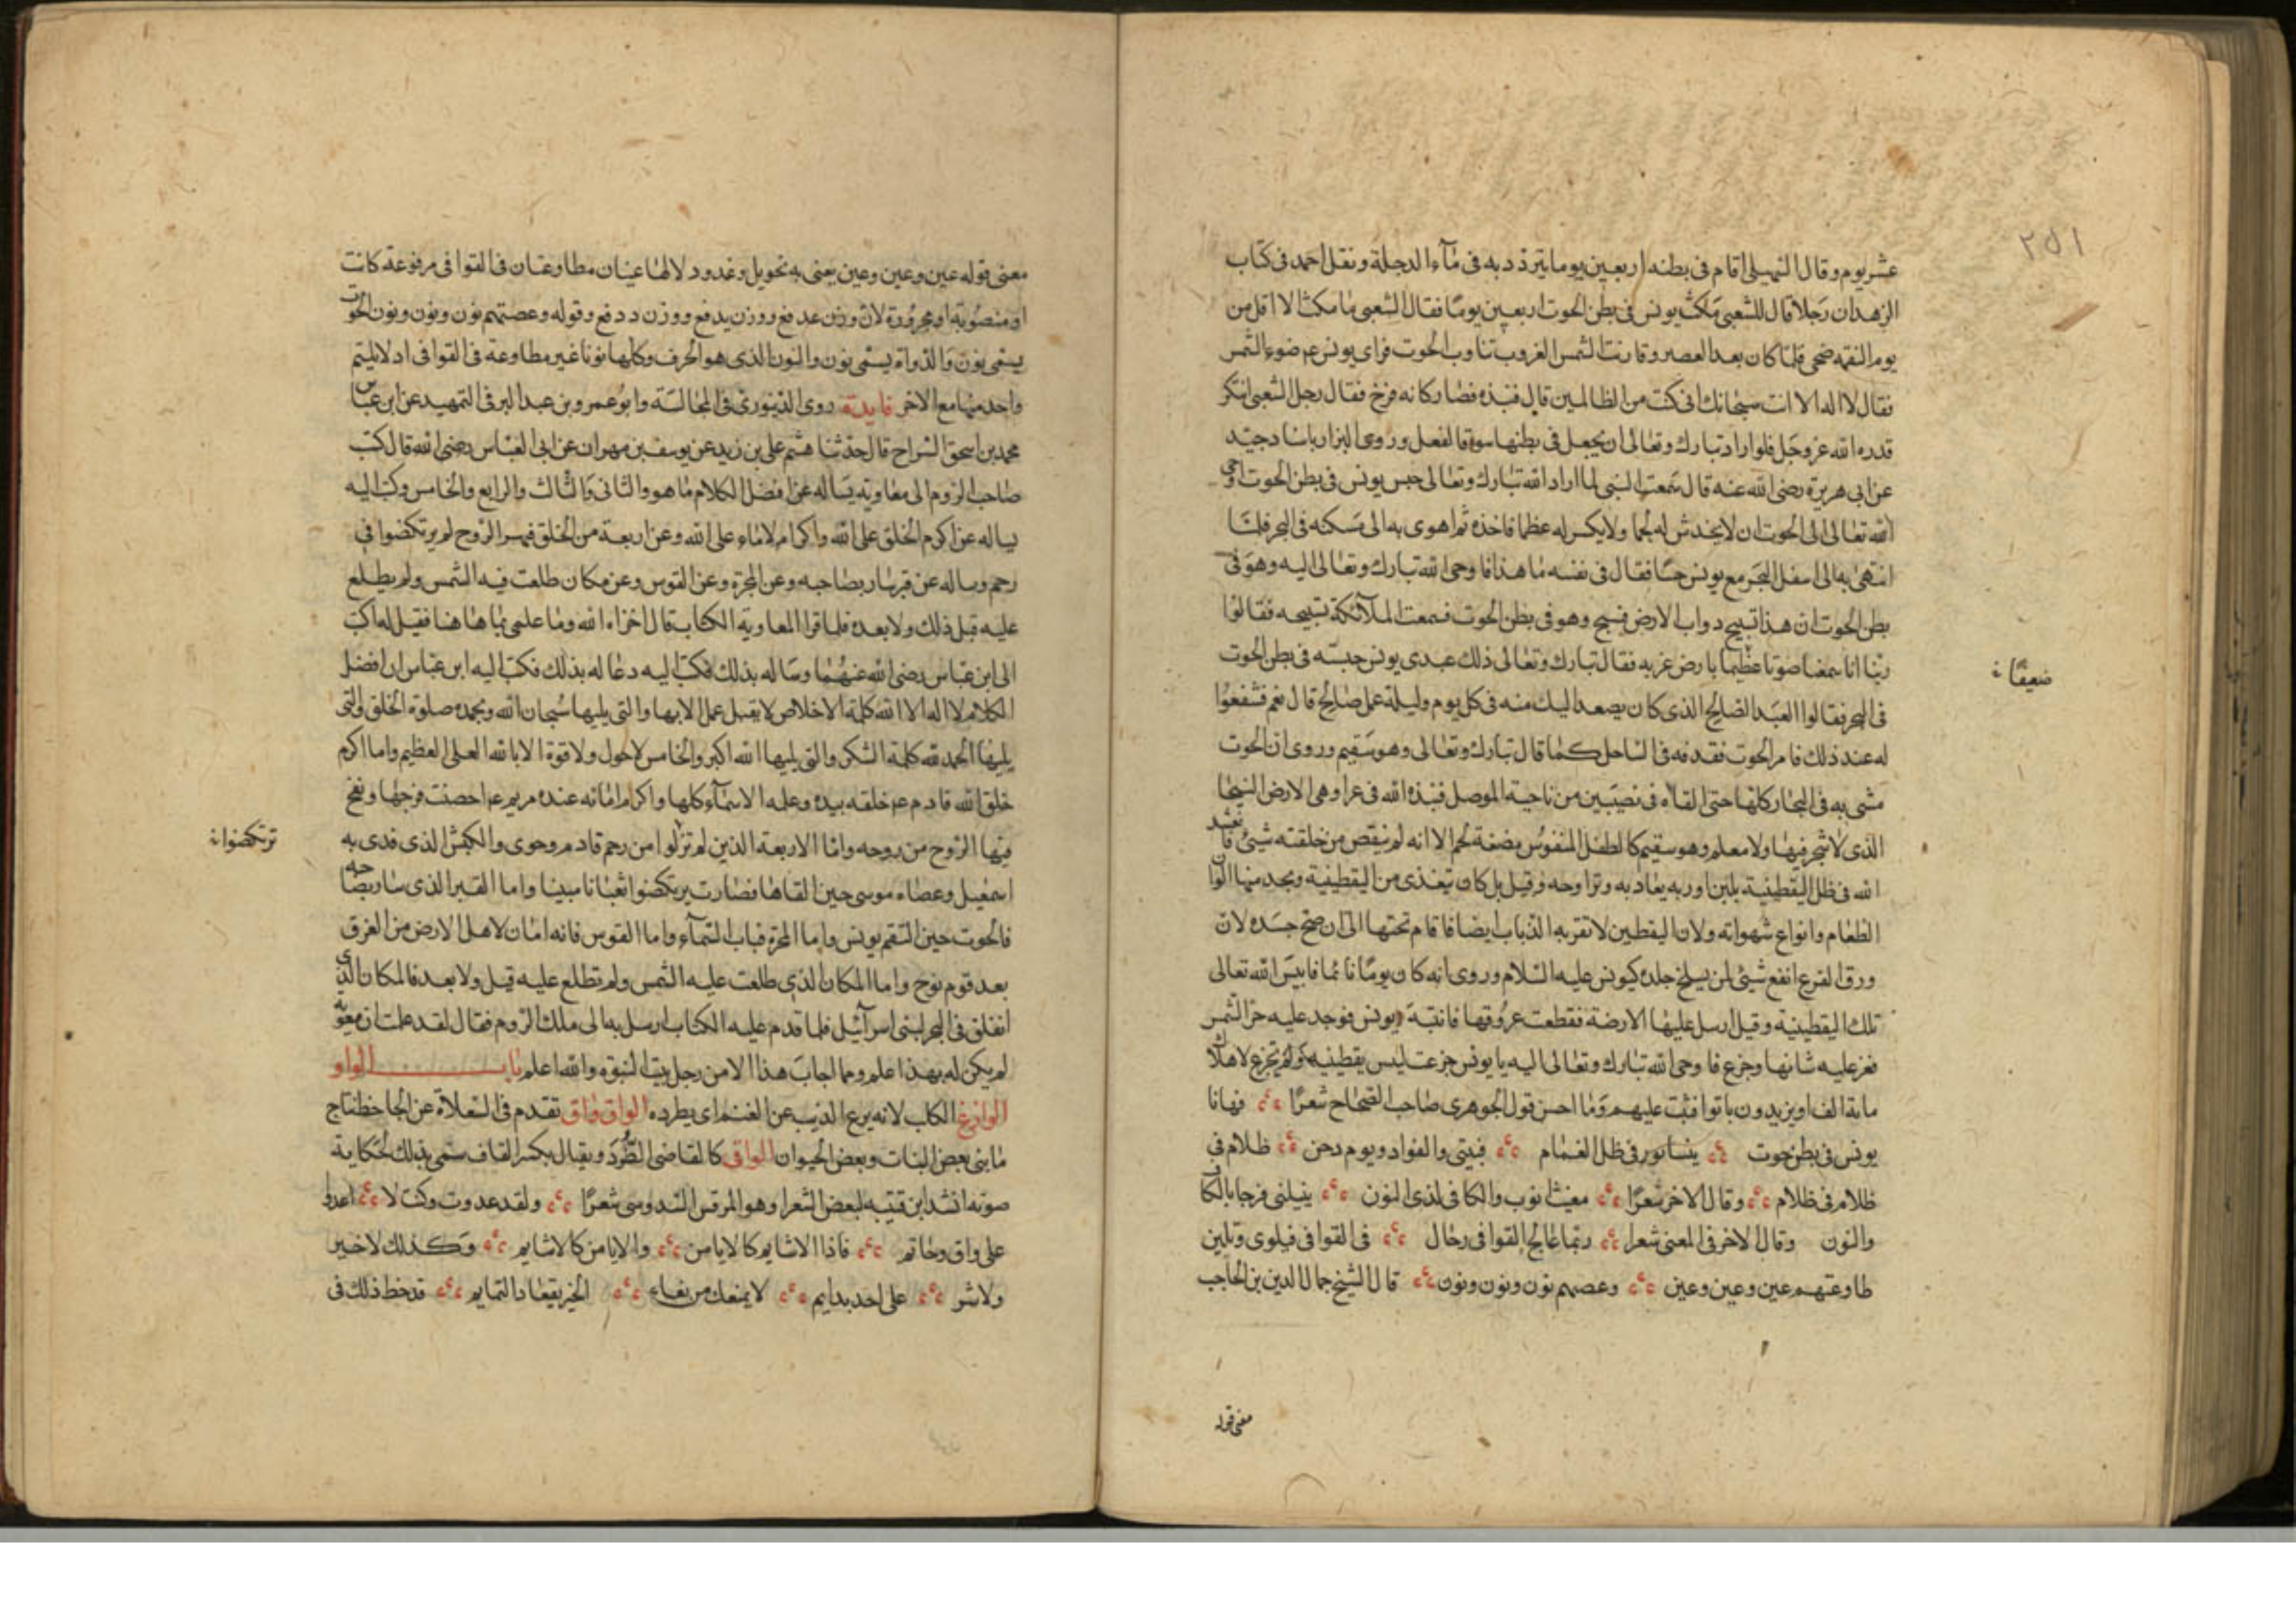 ٢٥١
عشر يوم وقال السهيلى اقام فى بطنه اربعين يوما يتردد به فى مآء الدجلة ونقل احمد فى كتاب
الزهد ان رجلا قال للشعبى مكث يونس فى بطن الحوت اربعين يومًا فقال الشعبى ما مكث الا اقل من
يوم التقمه ضحى فلما كان بعد العصر وقاربت الشمس الغروب تثاوب الحوت فراى يونس عم ضوء الشمس
فقال لا اله الا انت سبحانك انى كنت من الظالمين قال فنبذه فصار كانه فرخ فقال رجل للشعبى اتنكر
قدره الله عز وجل فلو اراد تبارك وتعالى ان يجعل فى بطنها سوقا لفعل وروى البزار باسناد جيد
عن ابى هريرة رضى الله عنه قال سمعت النبى لما اراد الله تبارك وتعالى حبس يونس فى بطن الحوت اوحى
الله تعالى الى الحوت ان لا يخدش له لحما ولا يكسر له عظما فاخذه ثم اهوى به الى مسكنه فى البحر فلما
انتهى به الى اسفل البحر مع يونس حسا فقال فى نفسه ما هذا فاوحى الله تبارك وتعالى اليه وهو فى
بطن الحوت ان هذا تسبيح دواب الارض فسبح وهو فى بطن الحوت فسمعت الملآئكة تسبيحه فقالوا
ربنا انا سمعنا صوتا عظيما بارض غربه فقال تبارك وتعالى ذلك عبدى يونس حبسته فى بطن الحوت
ضعيفًا
فى البحر فقالوا العبد الصالح الذى كان يصعد اليك منه فى كل يوم وليلة عمل صالح قال نعم فشفعوا
له عند ذلك فامر الحوت فقدفه فى الساحل كما قال تبارك وتعالى وهو سقيم وروى ان الحوت
مشى به فى البحار كلها حتى القاه فى نصيبين من ناحية الموصل فنبذه الله فى عرا وهى الارض الفيحا
الذى لا شجر فيها ولا معلم وهو سقيم كالطفل المنفوس مضغة لحم الا انه لم ينقص من خلقته شئ فانعش
الله فى ظل اليقطينة بلبن اوربه يغاد به وتراوحه وقيل بل كان يتغذى من اليقطينة ويجد منها الوان
الطعام وانواع شهواته ولان اليقطين لا تقربه الذباب ايضا فاقام تحتها الى ان صح جسده لان
ورق القرع انفع شئ لمن يسلخ جلده كيونس عليه السلام وروى انه كان يومًا نائما فايبس الله تعالى
تلك اليقطينة وقيل ارسل عليها الارضة فقطعت عروقها فانتبه يونس فوجد عليه حر الشمس
فعز عليه شانها وجزع فاوحى الله تبارك وتعالى اليه يا يونس جزعت ليبس يقطينة ولم تجزع لاهلاك
ماية الف او يزيدون باتوا فتبت عليهم وما احسن قول الجوهرى صاحب الصحاح شعرًا فهانا
يونس فى بطن حوت بنيسابور فى ظل الغمام فبيتى والفواد ويوم دجن ظلام فى
ظلام فى ظلام وقال الاخر شعرًا مغيث ايوب والكافى لذى النون ينيلنى فرجا بالكاف
والنون وقال الاخر فى المعنى شعرا ربما عالج القوافى رجال فى القوافى فيلوى وتلين
طاوعتهم عين وعين وعين وعصتهم نون ونون ونون قال الشيخ جمال الدين بن الحاجب
معنى قوله
معنى قوله عين وعين وعين يعنى به نحو يد وغد ودد لانها عينان مطاوعتان فى القوافى مرفوعة كانت
او منصوبة او مجرورة لان وزن غد فع ووزن يد فع ووزن دد فع وقوله وعصتهم نون ونون ونون الحوت
يسمى نون والدواة يسمى نون والنون الذى هو الحرف وكلها نونا غير مطاوعة فى القوافى اذ لا يلتيم
واحد منها مع الاخر فايدة روى الدينورى فى المجالسة وابو عمرو بن عبد البر فى التمهيد عن ابن عباس
محمد بن اسحق السراح قال حدثنا هشم على بن زيد عن يوسف بن مهران عن ابى العباس رضى الله قال كتب
صاحب الروم الى معاويه يساله عن افضل الكلام ما هو والثانى والثالث والرابع والخامس وكتب اليه
يساله عن اكرم الخلق على الله واكرام الاماء على الله وعن اربعة من الخلق فيهم الروح لم يرتكضوا فى
رحم وساله عن قبر سار بصاحبه وعن المجرة وعن القوس وعن مكان طلعت فيه الشمس ولم يطلع
عليه قبل ذلك ولا بعده فلما قرا المعاوية الكتاب قال اخزاه الله وما علمى بما هاهنا فقيل له اكتب
الى ابن عباس رضى الله عنهما وساله بذلك فكتب اليه دعا له بذلك فكتب اليه ابن عباس ان افضل
الكلام لا اله الا الله كلمة الاخلاص لا يقبل عمل الا بها والتى يليها سبحان الله وبحمده صلوة الخلق والتى
يليها الحمد لله كلمة الشكر والتى يليها الله اكبر والخامس لا حول ولا قوة الا بالله العلى العظيم واما اكرم
خلق الله فادم عم خلقه بيده وعلمه الاسمآء كلها واكرام امائه عنده مريم عم احصنت فرجها ونفخ
فيها الروح من روحه واما الاربعة الذين لم تزلوا من رحم فادم وحوى والكبش الذى فدى به
ترتكضوا
اسمعيل وعصاء موسى حين القاها فصارت يرتكضوا ثعبانا مبينا واما القبر الذى سار بصاحبه
فالحوت حين التقم يونس واما المجرة فباب السمآء واما القوس فانه امان لاهل الارض من الغرق
بعد قوم نوح واما المكان الذى طلعت عليه الشمس ولم تطلع عليه قبل ولا بعد فالمكان الذى
انفلق فى البحر لبنى اسرآئيل فلما قدم عليه الكتاب ارسل به الى ملك الروم فقال لقد علمت ان معوية
لم يكن له بهذا علم وما اجاب هذا الا من رجل بيت النبوة والله اعلم باب الواو
الوازغ الكلب لانه يزع الذيب عن الغنم اى يطرده الواق واق تقدم فى السعلاة عن الجاحظ نتاج
ما بنى بعض النبات وبعض الحيوان الواق كالقاضى الصرد ويقال بكسر القاف سمى بذلك لحكاية
صوته انشد ابن قتيبه لبعض الشعرا وهو المرقس السدوسى شعرًا ولقد عدوت وكنت لا اعدوا
على واق وحاتم فاذا الاشايم كالايامن والايامن كالاشايم وكذلك لا خير
ولا شر على احد بدايم لا يمنعك من بغاء الخير تعقاد التمايم قد خط ذلك فى